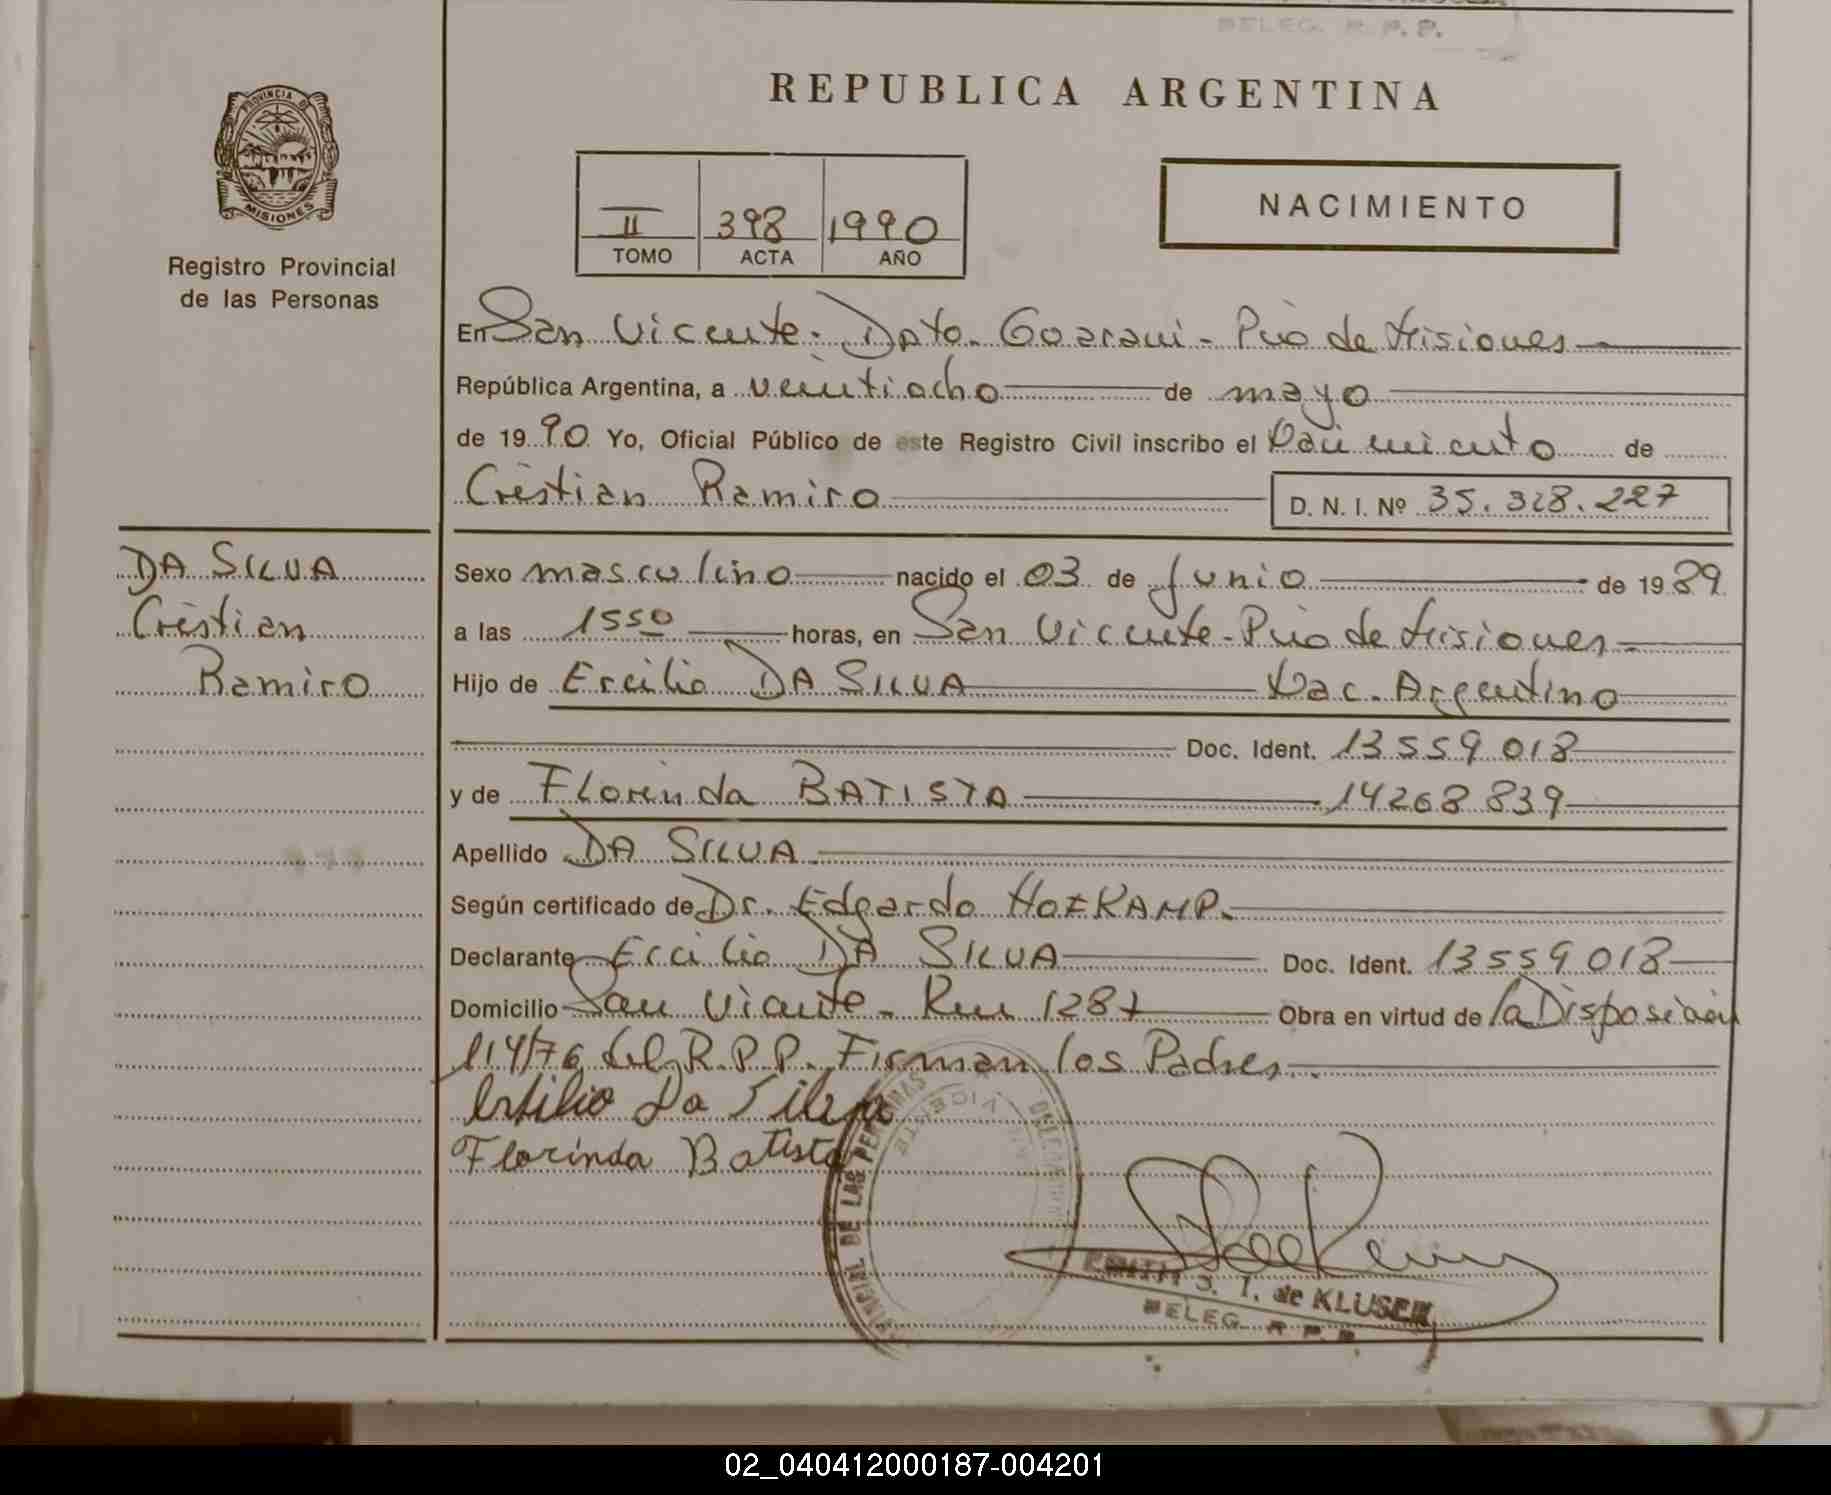 BELEG. R. P. P.
REPUBLICA ARGENTINA
PROVINCIA DE
MISIONES
Registro Provincial
de las Personas
II 398 1990
TOMO ACTA AÑO
NACIMIENTO
En San Vicente. Dpto. Guarani - Pcia de Misiones
República Argentina, a veintiocho de mayo
de 1990 Yo, Oficial Público de este Registro Civil inscribo el Nacimiento de
Cristian Ramiro D. N. I. Nº 35.328.227
DA SILVA
Cristian
Ramiro
Sexo masculino nacido el 03 de Junio de 1989
a las 1550 horas, en San Vicente - Pcia de Misiones
Hijo de Ercilio DA SILVA Nac. Argentino
Doc. Ident. 13559018
y de Florinda BATISTA 14268839
Apellido DA SILVA
Según certificado de Dr. Edgardo
Declarante Ercilio DA SILVA Doc. Ident. 13559018
Domicilio San Vicente - Km 1287 Obra en virtud de la Disposición
114/76 del R.P.P. Firman los Padres.
Da Silva
Florinda Batista
DE LAS PERSONAS
VICENTE
S. T. de KLUSEN
BELEG. R. P. P.
02_040412000187-004201